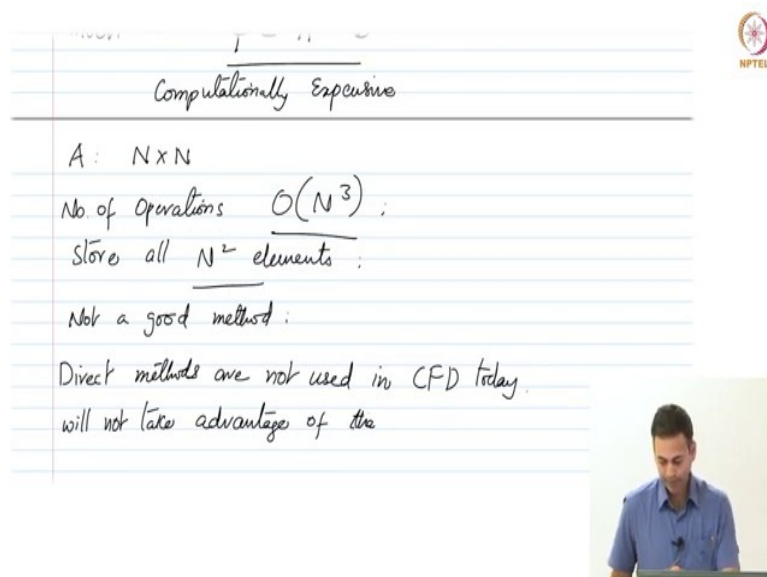 NPTEL
Computationally Expensive
A: N×N
No. of Operations O(N³);
Store all N² elements;
Not a good method:
Direct methods are not used in CFD today.
will not take advantage of the